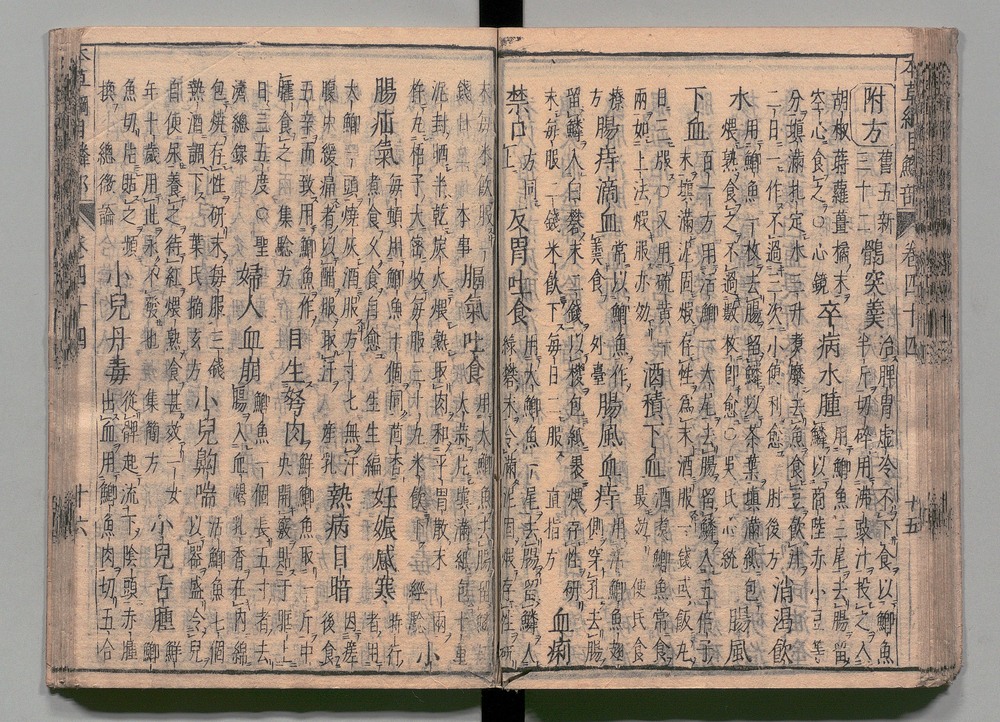 本草綱目鱗部 卷四十四 十五
附方舊五新三十二鶻突羹治脾胃虛冷不下食以鯽魚半斤切碎用沸豉汁投之入
胡椒蒔蘿薑橘末空心食之○心鏡卒病水腫用鯽魚三尾去腸留鱗以商陸赤小豆等
分填滿扎定水三升煮糜去魚食豆飲汁二日一作不過三次小便利愈肘後方消渴飲
水用鯽魚一枚去腸留鱗以茶葉填滿紙包煨熟食之不過數枚即愈○吳氏心統腸風
下血百一方用活鯽一大尾去腸留鱗入五倍子末填滿泥固煅存性爲末酒服一錢或飯丸
日三服○又用硫黃一兩如上法煅服亦効酒積下血酒煮鯽魚常食最効便民食
療方腸痔滴血常以鯽魚作羹食外臺腸風血痔用活鯽魚翅側穿孔去腸
留鱗入白礬末二錢以椶包紙裹煨存性研末每服二錢米飲下每日二服直指方血痢
禁口方同上反胃吐食用大鯽魚一尾去膽留鱗入綠礬末令滿泥固煅存性研
末每米飲服一錢日二本事膈氣吐食用大鯽魚去腸留鱗切大蒜片填滿紙包十重
泥封晒半乾炭火煨熟取肉和平胃散末一兩杵丸梧子大密收每服三十丸米飲下經驗小
腸疝氣每頓用鯽魚十個同茴香煮食久食自愈生生編妊娠感寒時行者用
大鯽一頭燒灰酒服方寸匕無汗腹中緩痛者以醋服取汗產乳熱病目暗因瘥後食
五辛而致用鯽魚作臛食之集驗方目生弩肉鮮鯽魚取一片中央開竅貼于眶上
日三五度○聖濟總錄婦人血崩鯽魚一個長五寸者去腸入血竭乳香在內綿
包燒存性研末每服三錢熱酒調下葉氏摘玄方小兒齁喘活鯽魚七個以器盛令兒
自便尿養之待紅煨熟食甚效一女年十歲用此永不發也集簡方小兒舌腫鮮鯽
魚切片貼之頻換總微論小兒丹毒從髀起流下陰頭赤腫出血用鯽魚肉切五合
本草綱目鱗部 卷四十四 十六